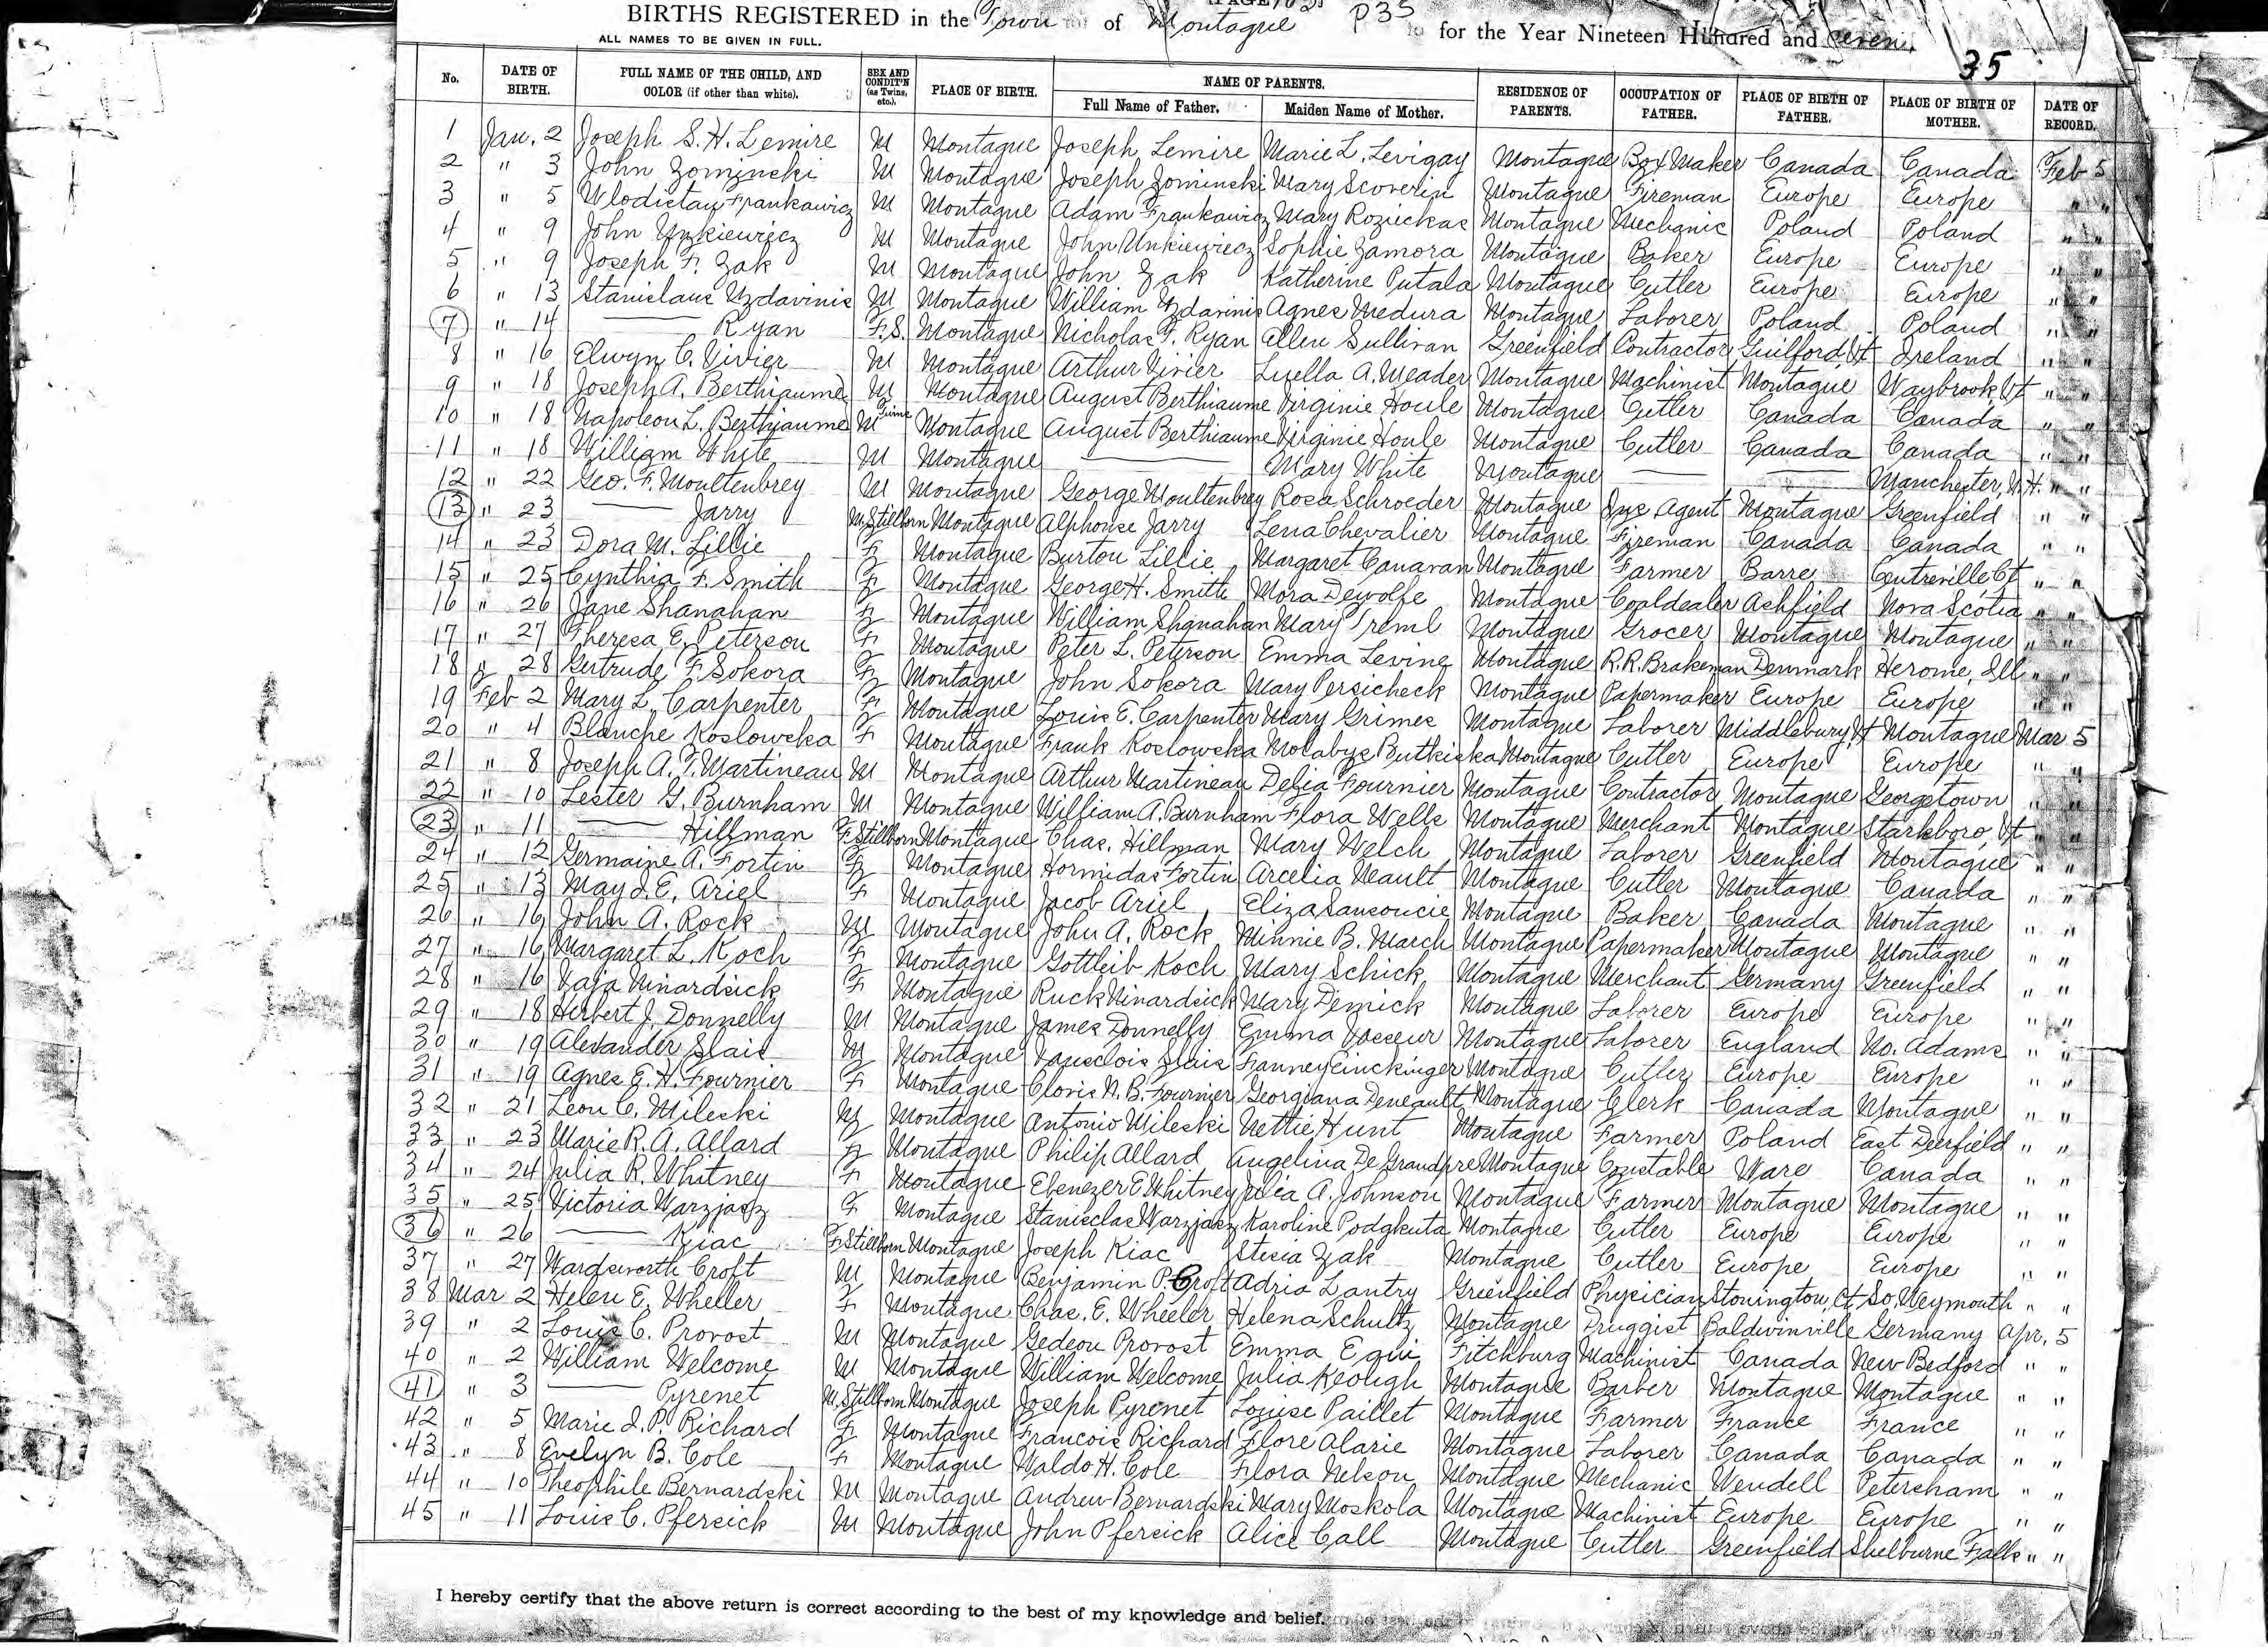 BIRTHS REGISTERED in the Town of Montague P35 for the Year Nineteen Hundred and seven.
ALL NAMES TO BE GIVEN IN FULL.
35
No. DATE OF BIRTH. FULL NAME OF THE CHILD, AND COLOR (if other than white). SEX AND CONDIT'N (as Twins, etc.). PLACE OF BIRTH. NAME OF PARENTS. Full Name of Father. Maiden Name of Mother. RESIDENCE OF PARENTS. OCCUPATION OF FATHER. PLACE OF BIRTH OF FATHER. PLACE OF BIRTH OF MOTHER. DATE OF RECORD.
1 Jan. 2 Joseph S. H. Lemire M Montague Joseph Lemire Marie L. Levigay Montague Box Maker Canada Canada Feb 5
2 " 3 John Zominski M Montague Joseph Zominski Mary Scoverin Montague Fireman Europe Europe " "
3 " 5 Wlodistau Frankawicz M Montague Adam Frankawicz Mary Rozieckas Montague Mechanic Poland Poland " "
4 " 9 John Unkiewiecz M Montague John Unkiewiecz Sophie Zamora Montague Baker Europe Europe " "
5 " 9 Joseph F. Zak M Montague John Zak Katherine Putala Montague Cutler Europe Europe " "
6 " 13 Stanislaus Uzdavinis M Montague William Uzdavinis Agnes Medura Montague Laborer Poland Poland " "
7 " 14 —— Ryan F. S. Montague Nicholas F. Ryan Ellen Sullivan Greenfield Contractor Guilford, Vt Ireland " "
8 " 16 Elwyn C. Vivier M Montague Arthur Vivier Luella A. Meader Montague Machinist Montague Waybrook, Vt " "
9 " 18 Joseph A. Berthiaume M Montague August Berthiaume Virginie Houle Montague Cutler Canada Canada " "
10 " 18 Napoleon L. Berthiaume M Twins Montague August Berthiaume Virginie Houle Montague Cutler Canada Canada " "
11 " 18 William White M Montague —— Mary White Montague —— —— Manchester, N. H. " "
12 " 22 Geo. F. Moultenbrey M Montague George Moultenbrey Rosa Schroeder Montague Ins. Agent Montague Greenfield " "
13 " 23 —— Jarry M. Stillborn Montague Alphonse Jarry Lena Chevalier Montague Fireman Canada Canada " "
14 " 23 Dora M. Lillie F Montague Burton Lillie Margaret Canavan Montague Farmer Barre Centreville, Ct " "
15 " 25 Cynthia F. Smith F Montague George H. Smith Mora Dewolfe Montague Coaldealer Ashfield Nova Scotia " "
16 " 26 Jane Shanahan F Montague William Shanahan Mary Treml Montague Grocer Montague Montague " "
17 " 27 Theresa E. Peterson F Montague Peter L. Peterson Emma Levine Montague R.R. Brakeman Denmark Herome, Ill " "
18 " 28 Gertrude F. Sokora F Montague John Sokora Mary Persicheck Montague Papermaker Europe Europe " "
19 Feb 2 Mary L. Carpenter F Montague Louis E. Carpenter Mary Grimes Montague Laborer Middlebury, Vt Montague Mar 5
20 " 4 Blanche Koslowska F Montague Frank Koslowska Molabys Butkiska Montague Cutler Europe Europe " "
21 " 8 Joseph A. T. Martineau M Montague Arthur Martineau Delia Fournier Montague Contractor Montague Georgetown " "
22 " 10 Lester G. Burnham M Montague William A. Burnham Flora Wells Montague Merchant Montague Starksboro, Vt " "
23 " 11 —— Hillman F Stillborn Montague Chas. Hillman Mary Welch Montague Laborer Greenfield Montague " "
24 " 12 Germaine A. Fortin F Montague Hormidas Fortin Arcelia Neault Montague Cutler Montague Canada " "
25 " 13 May I. E. Ariel F Montague Jacob Ariel Eliza Sansoucie Montague Baker Canada Montague " "
26 " 16 John A. Rock M Montague John A. Rock Minnie B. March Montague Papermaker Montague Montague " "
27 " 16 Margaret L. Koch F Montague Gottleib Koch Mary Schick Montague Merchant Germany Greenfield " "
28 " 16 Vaja Ninardsick F Montague Ruck Ninardsick Mary Demick Montague Laborer Europe Europe " "
29 " 18 Herbert J. Donnelly M Montague James Donnelly Emma Vasseur Montague Laborer England No. Adams " "
30 " 19 Alexander Slais M Montague Vansclois Slais Fanney Einckinger Montague Cutler Europe Europe " "
31 " 19 Agnes E. H. Fournier F Montague Clovis N. B. Fournier Georgiana Deneault Montague Clerk Canada Montague " "
32 " 21 Leon C. Mileski M Montague Antonio Mileski Nettie Hunt Montague Farmer Poland East Deerfield " "
33 " 23 Marie R. A. Allard F Montague Philip Allard Angelina De Grandpre Montague Constable Ware Canada " "
34 " 24 Julia R. Whitney F Montague Ebenezer E Whitney Julia A. Johnson Montague Farmer Montague Montague " "
35 " 25 Victoria Warzjasz F Montague Stanisclas Warzjasz Karoline Podgkuta Montague Cutler Europe Europe " "
36 " 26 —— Kiac F Stillborn Montague Joseph Kiac Stesia Zak Montague Cutler Europe Europe " "
37 " 27 Wardsworth Croft M Montague Benjamin P. Croft Adria Lantry Greenfield Physician Stonington, Ct So. Weymouth " "
38 Mar 2 Helen E. Wheeler F Montague Chas. E. Wheeler Helena Schultz Montague Druggist Baldwinville Germany Apr. 5
39 " 2 Louis C. Provost M Montague Gedeon Provost Emma Equi Fitchburg Machinist Canada New Bedford " "
40 " 2 William Welcome M Montague William Welcome Julia Keough Montague Barber Montague Montague " "
41 " 3 —— Pyrenet M. Stillborn Montague Joseph Pyrenet Louise Paillet Montague Farmer France France " "
42 " 5 Marie I. P. Richard F Montague Francois Richard Flore Alarie Montague Laborer Canada Canada " "
43 " 8 Evelyn B. Cole F Montague Waldo H. Cole Flora Nelson Montague Mechanic Wendell Petersham " "
44 " 10 Theophile Bernardski M Montague Andrew Bernardski Mary Moskola Montague Machinist Europe Europe " "
45 " 11 Louis C. Pfersick M Montague John Pfersick Alice Call Montague Cutler Greenfield Shelburne Falls " "
I hereby certify that the above return is correct according to the best of my knowledge and belief.